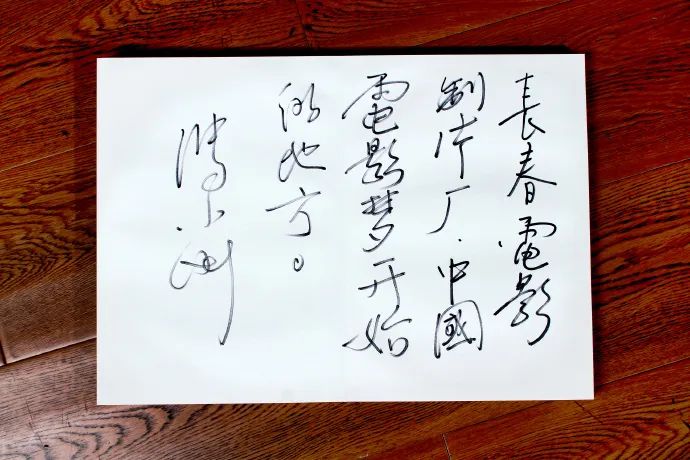 長春電影
制片厂·中國
電影梦开始
的地方。